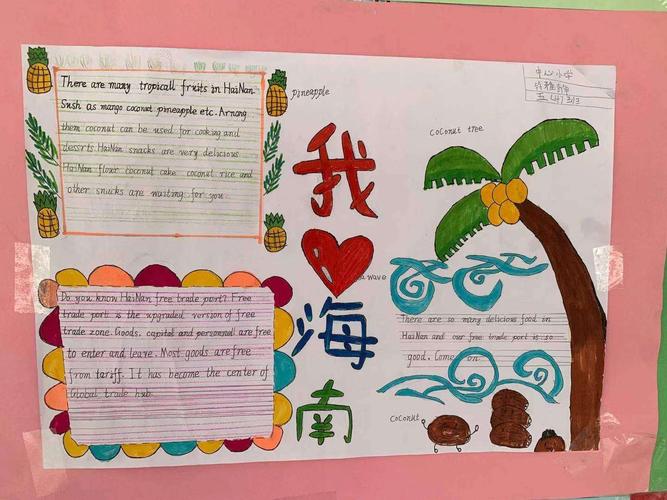 There are many tropicall fruits in HaiNan.
Sush as mango coconut pineapple etc. Among
them coconut can be used for cooking and
dessrts HaiNan snacks are very delicious
HaiNan flour coconut cake coconut rice and
other snacks are waiting for you
pineapple
中心小学
五(4)
coconut tree
我
海
南
wave
Do you know HaiNan free trade port? Free
trade port is the upgraded version of free
trade zone. Goods, capital and personnel are free
to enter and leave. Most goods are free
from tariff. It has become the center of
Global trade hub.
There are so many delicious food in
HaiNan and our free trade port is so
good. Come on.
coconut